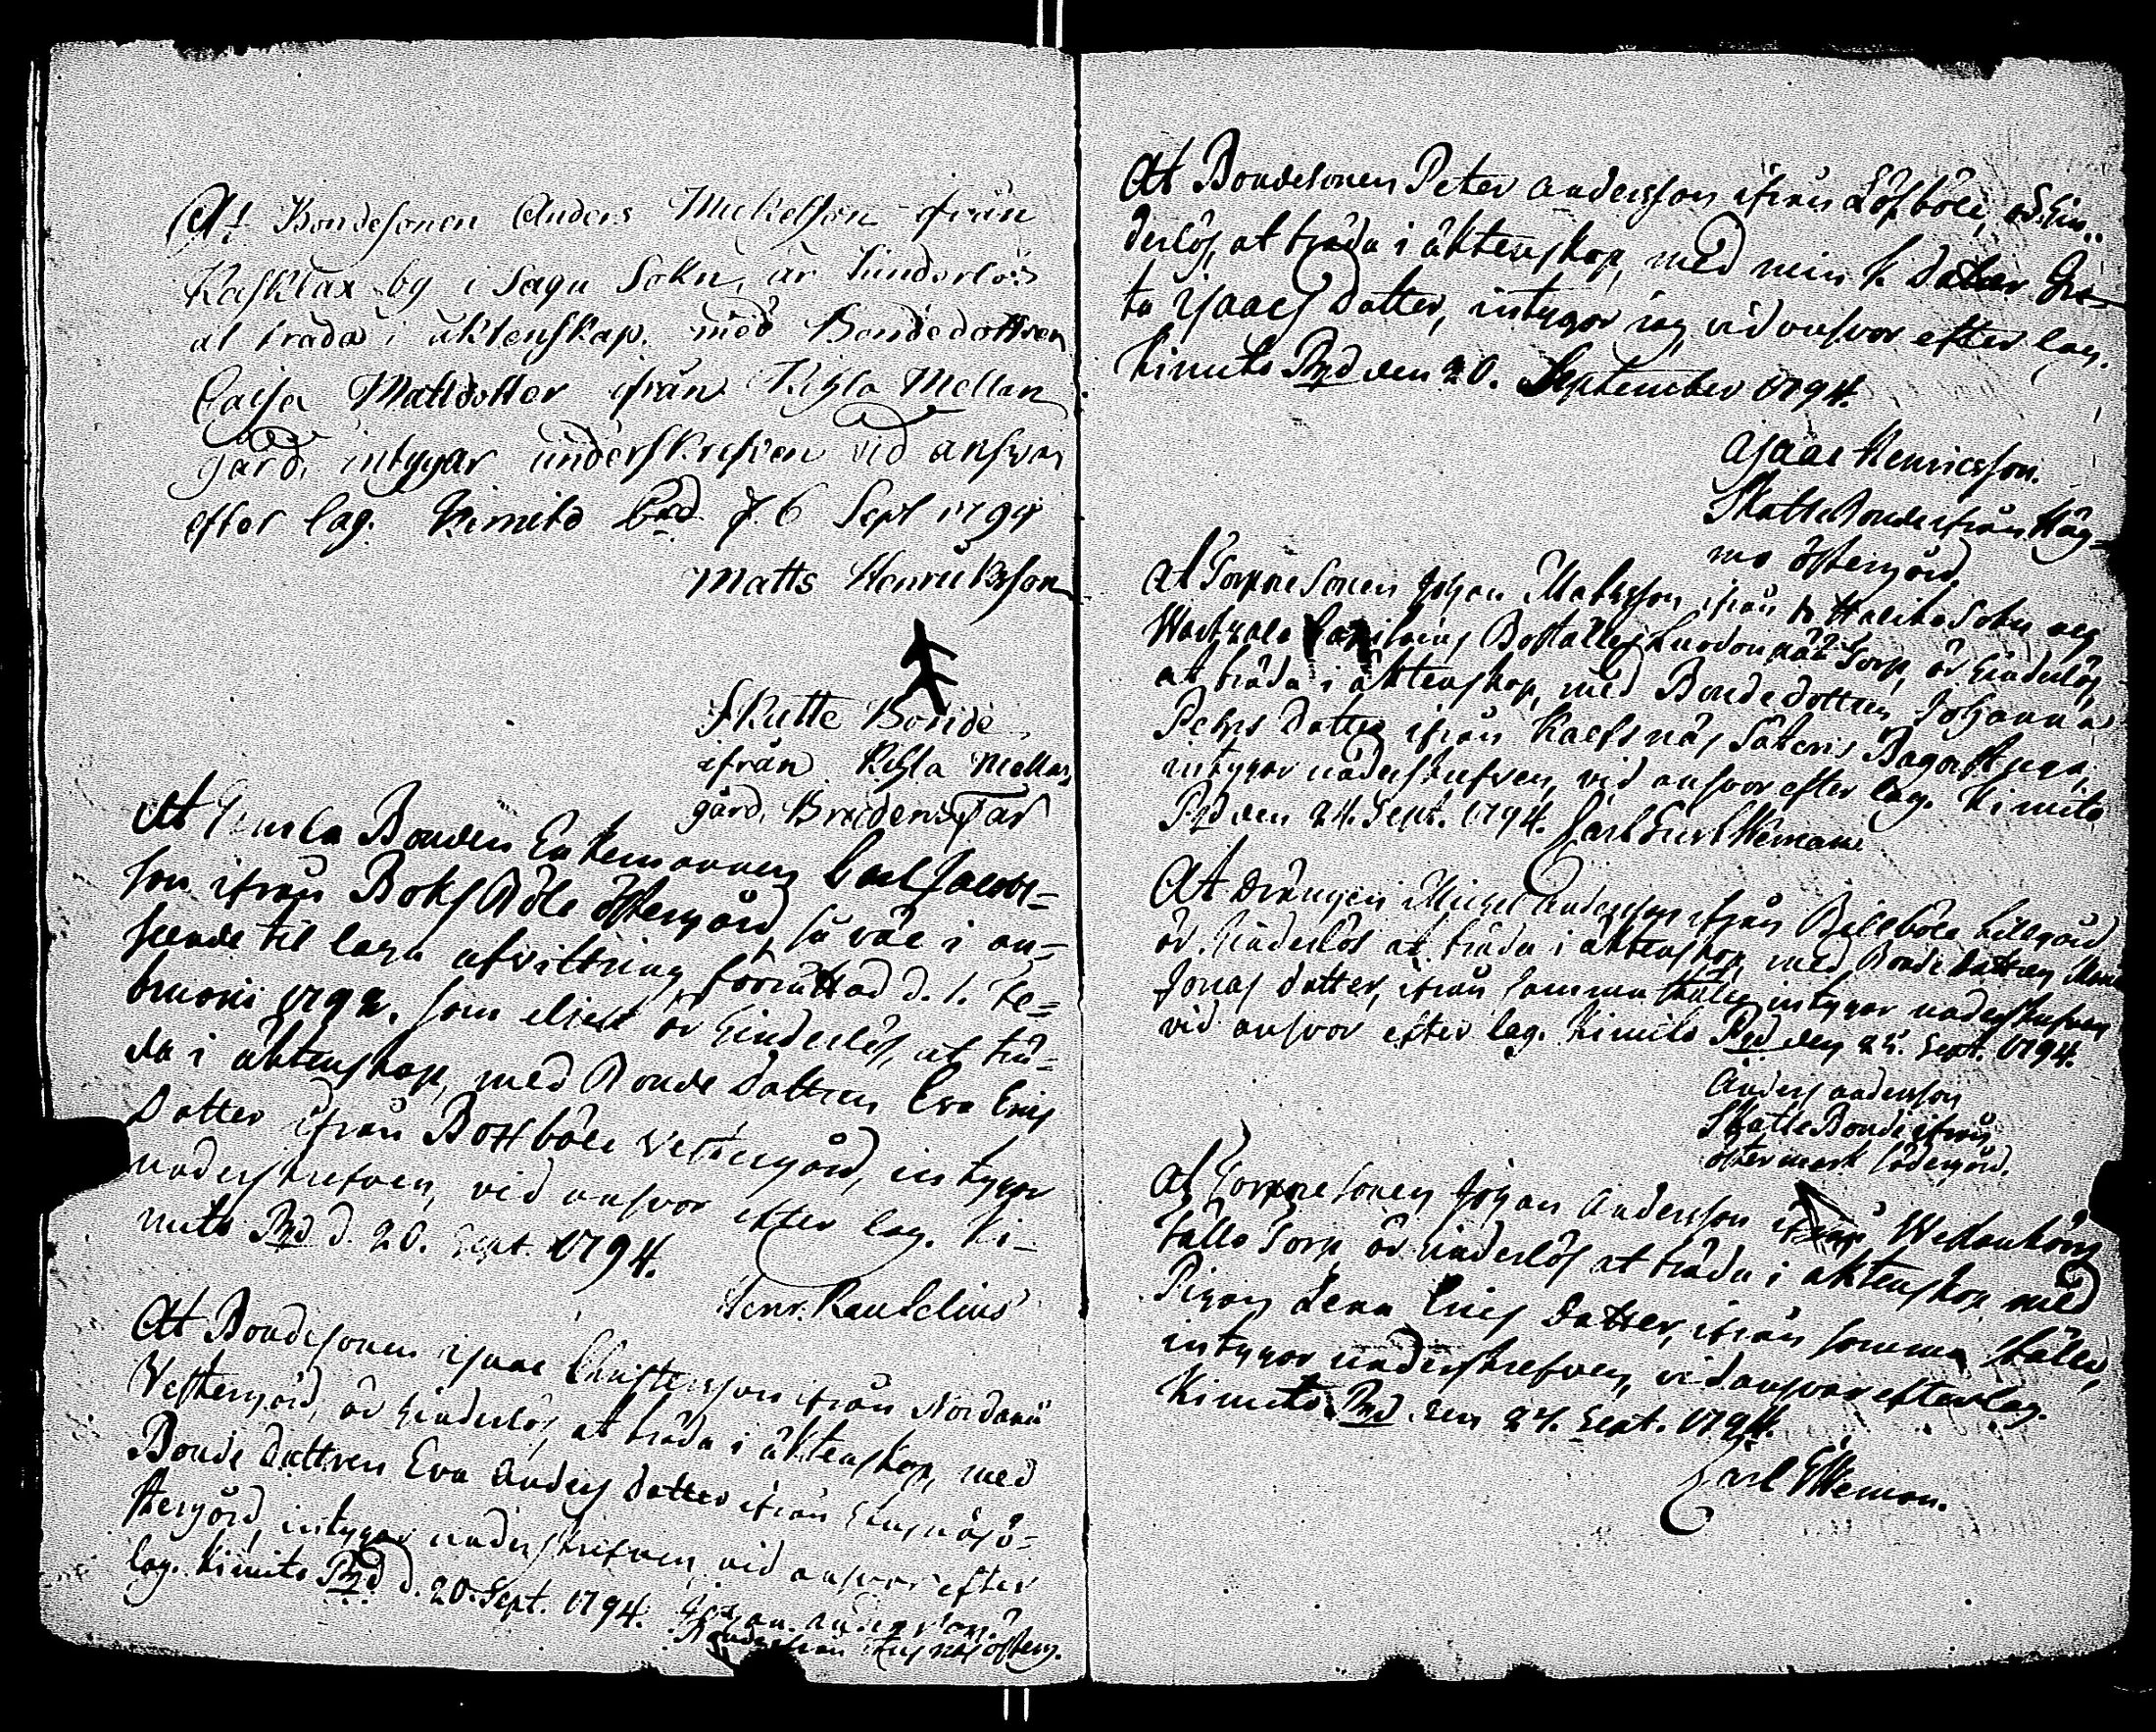 At Bondesonen Anders Mickelsson ifrån
Kasklax by i Sagu Sokn, är hinderlös
at träda i äktenskap, med Bondedottren
Caisa Mattsdotter ifrån Mellan
gård, intygar underskrefven vid answar
efter lag. Kimito d. 6 Sept 1794
Matts Henriksson
Skatte Bonde
ifrån Mellan
gård, Brudenes far
At Gamla Bonden Enkemannen Carl Jacobs-
son ifrån Boksböle östergård, så väl i an-
seende til laga afvittring, förrättad d. 1. Fe-
bruarii 1792. som eljest är hinderlös, at trä-
da i äktenskap, med Bonde dottren Eva Erics
Dotter ifrån Bottböle vestergård, intygar
underskrefven, vid ansvar efter lag. Ki-
mito Pgd d. 20. Sept. 1794.
Henr.
At Bondesonen Isaac Christersson ifrån Nordanå
Vestergård, är hinderlös, at träda i äktenskap, med
Bonde dottren Eva Anders dotter ifrån ö-
stergård, intygar underskrefven, vid ansvar efter
lag. Kimito Pgd d. 20. Sept. 1794. Johan Andersson
Bonde ifrån österg.
At Bondesonen Peter Andersson ifrån Löfböle, är hin-
derlös, at träda i äktenskap, med min k. dotter Gre-
ta Isaacs Dotter, intygar jag, vid ansvar efter lag.
Kimito Pgd den 20. September 1794.
Isaac Henricsson.
Skatte Bonde ifrån Häg-
mo östergård.
At Torparesonen Johan Matsson ifrån Halicko Sokn och
Boställes Torp, är hinderlös
at träda i äktenskap, med Bondedottren Johanna
Pehrs dotter ifrån Säteris Bagarstuga,
intygar underskrefven, vid ansvar efter lag. Kimito
Pgd den 24. Sept. 1794. Carl Eneman.
At Drängen Michel Andersson ifrån Billböle Lillgård
är hinderlös at träda i äktenskap, med Bonde dottren
Jonas dotter, ifrån samma ställe, intygar underskrefven
vid ansvar efter lag. Kimito Pgd den 25. Sept. 1794.
Anders Andersson
Skatte Bonde ifrån
östermark södergård.
At Torparesonen Johan Andersson ifrån
Torp är hinderlös at träda i äktenskap med
Pigan Lena Erics dotter, ifrån samma ställe,
intygar underskrefven, vid ansvar efter lag.
Kimito Pgd den 27. Sept. 1794.
Carl